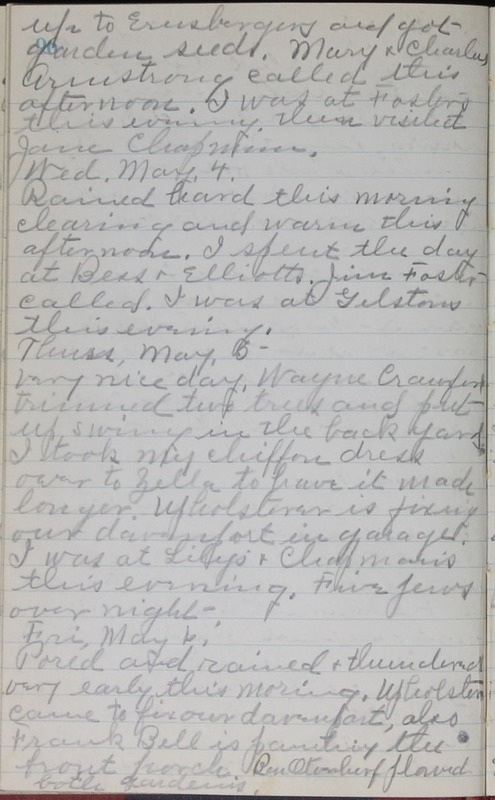 up to Ernsbergers and got
90
garden seeds. Mary & Charles
Armstrong called this
afternoon. I was at Fosters
this evening then visited
Jane Chapman.
Wed. May, 4.
Rained hard this morning
clearing and warm this
afternoon. I spent the day
at Bess & Elliotts. Jim Foster
called. I was at Gilstons
this evening.
Thurs, May, 5-
Very nice day. Wayne Crawford
trimmed two trees and put
up swing in the back yard
I took my chiffon dress
over to Zella to have it made
longer. Upholsterer is fixing
our davenport in garage.
I was at Lily's & Chapman's
this evening. Five Jews
over night-
Fri, May 6.
Pored and rained & thundered
very early this moring. Upholster
came to fix our davenport, also
Frank Bell is painting the
front porch. Ben plowed
both gardens.